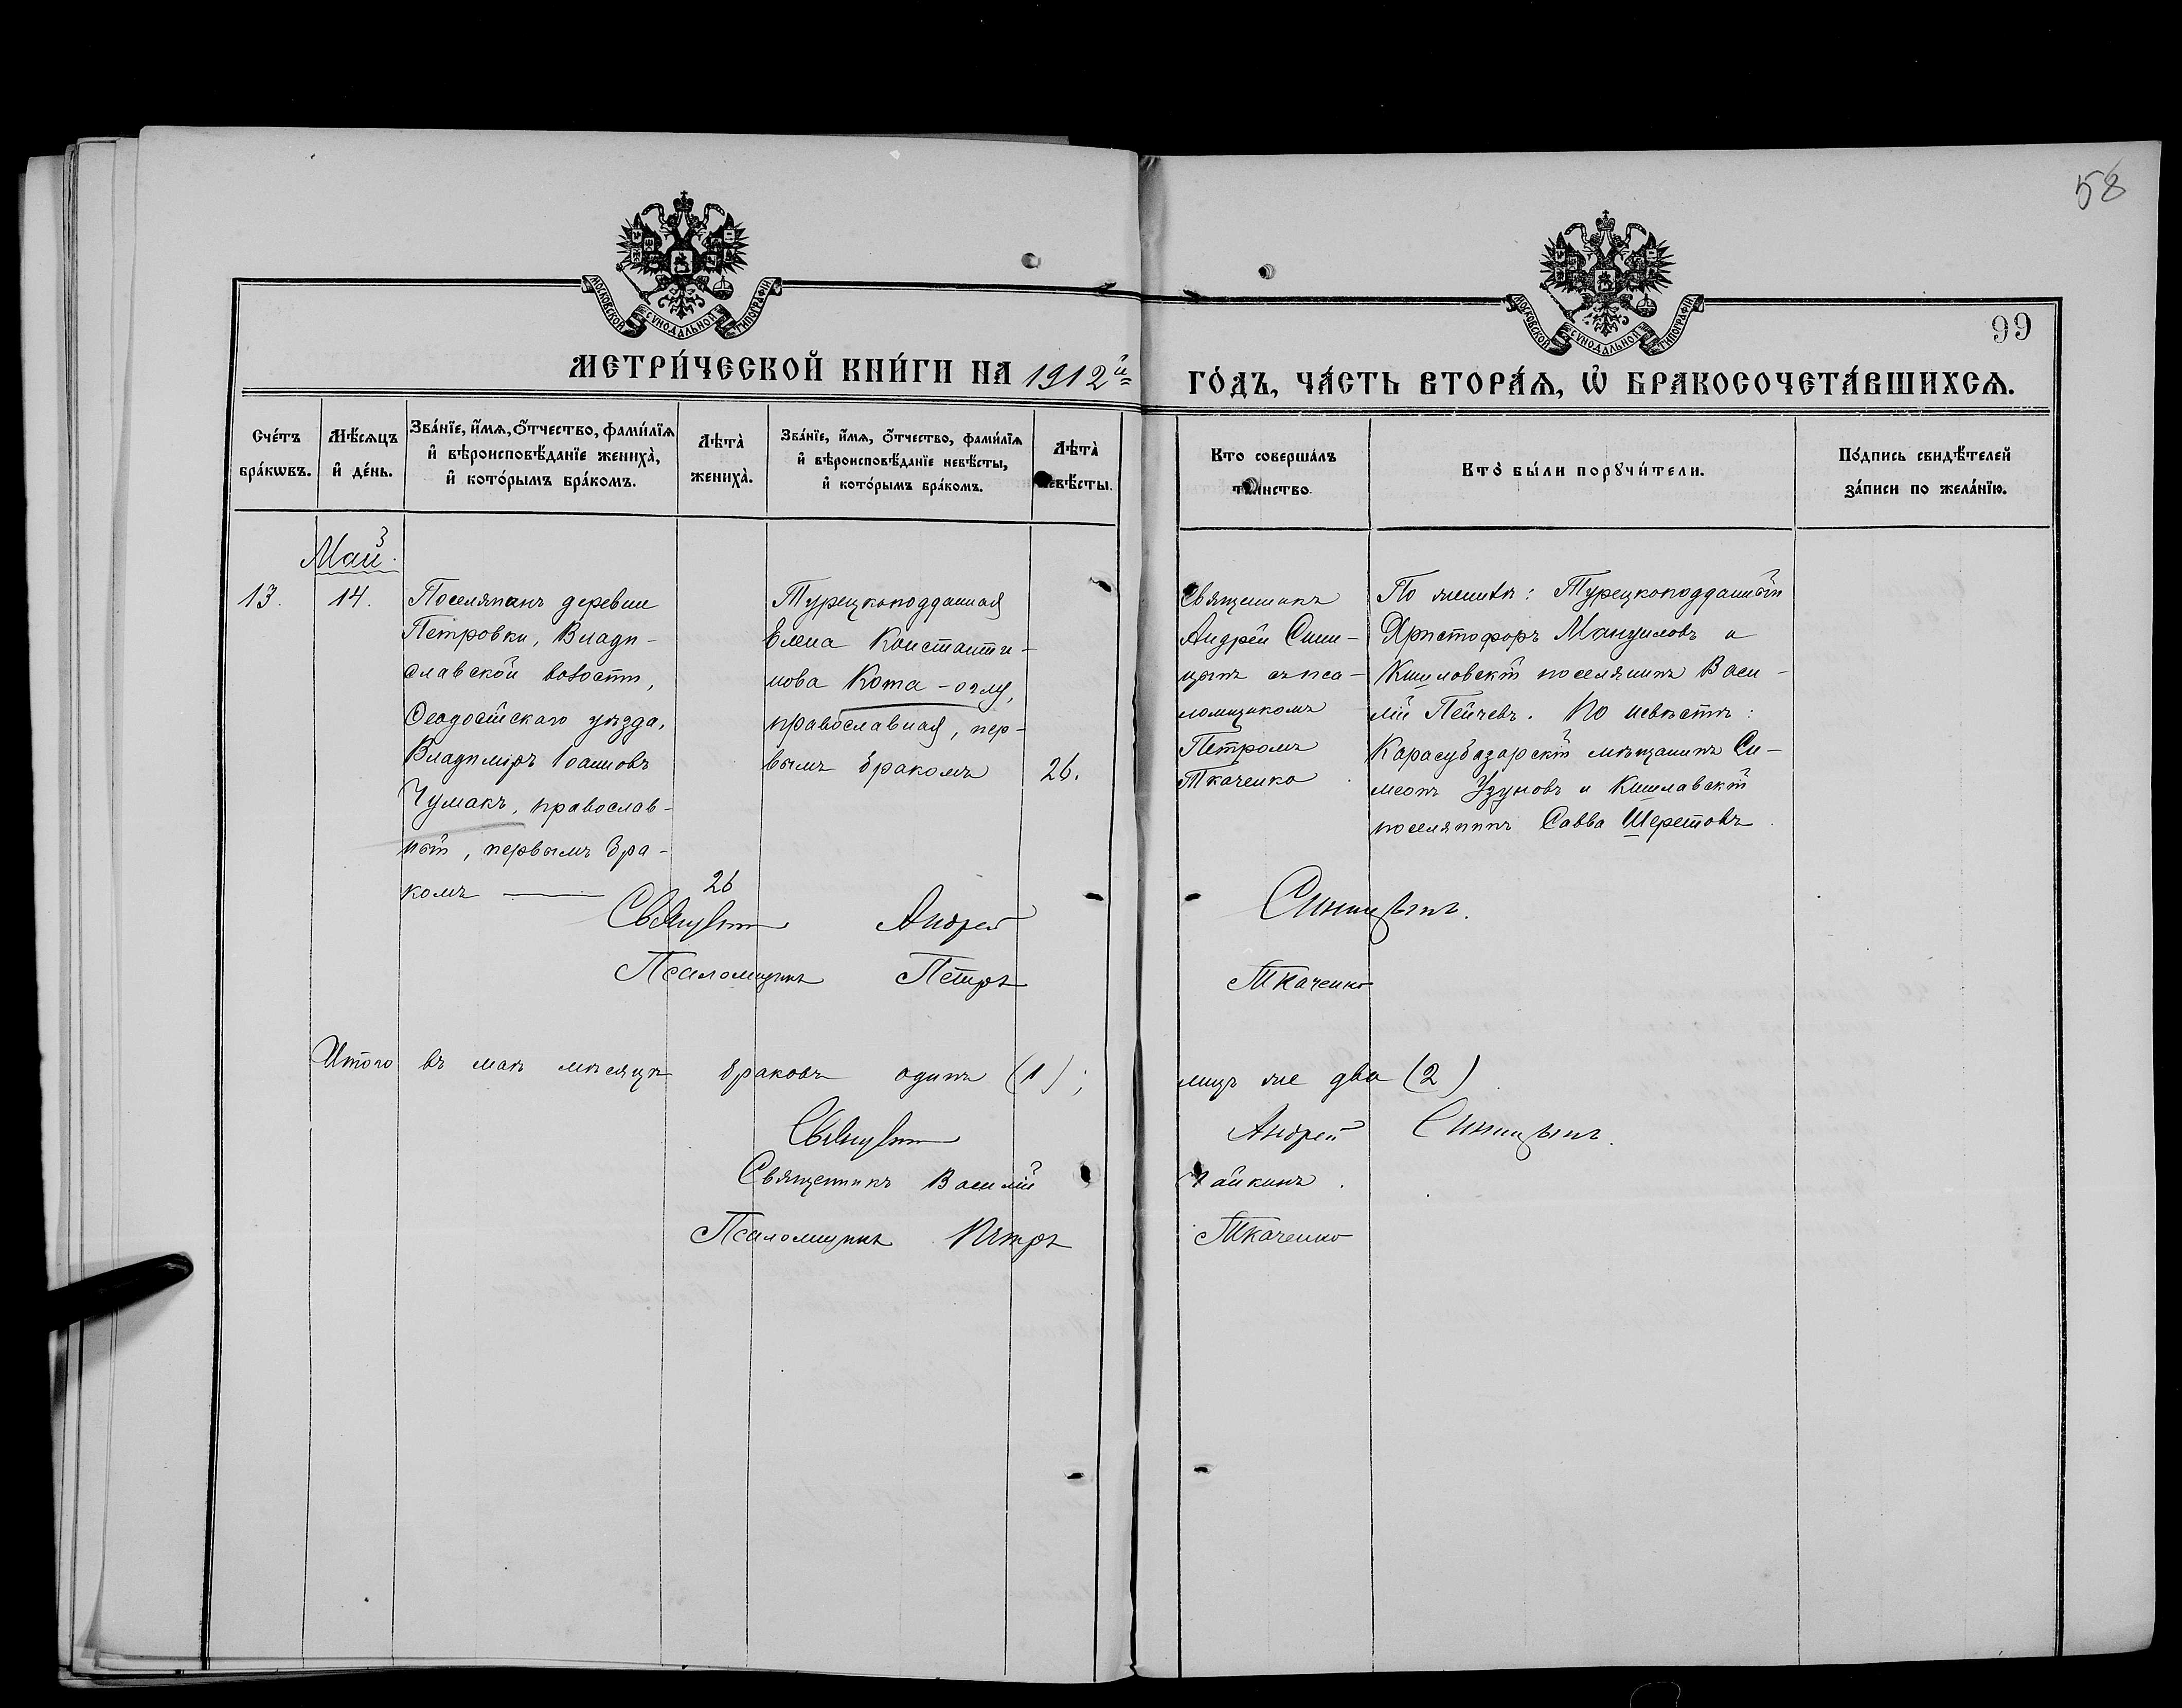 58
МОСКОВСКОЙ СѴНОДАЛЬНОЙ ТИПОГРАФІИ
МОСКОВСКОЙ СѴНОДАЛЬНОЙ ТИПОГРАФІИ
99
МЕТРИ́ЧЕСКОЙ КНИ́ГИ НА 1912й
ГО́ДЪ, ЧА́СТЬ ВТОРА́Ѧ, Ѽ БРАКОСОЧЕТА́ВШИХСѦ.
Сче́тъ бра́кѡвъ.
Мѣ́сѧцъ и҆ де́нь.
Зва́нїе, и҆́мѧ, ѻ҆́тчество, фами́лїѧ и҆ вѣроисповѣ́данїе жениха̀, и҆ кото́рымъ бра́комъ.
Лѣта̀ жениха̀.
Зва́нїе, и҆́мѧ, ѻ҆́тчество, фами́лїѧ и҆ вѣроисповѣ́данїе невѣ́сты, и҆ кото́рымъ бра́комъ.
Лѣта̀ невѣ́сты.
Кто совершáлъ та́инство.
Кто̀ бы́ли порꙋчи́тели.
По́дпись свидѣ́телей за́писи по жела́нїю.
Май.
13.
14.
Поселянинъ деревни
Петровки, Влади-
славской волости,
Ѳеодосійскаго уѣзда,
Владиміръ Іоанновъ
Чумакъ, православ-
ный, первымъ бра-
комъ
26
Турецкоподданная
Елена Константи-
нова Кота-оглу,
православная, пер-
вымъ бракомъ
26.
Священникъ
Андрей Сини-
цынъ съ пса-
ломщикомъ
Петромъ
Ткаченко
По женихѣ: Турецкоподданный
Христофоръ Мануиловъ и
Кишлавскій поселянинъ Васи-
лій Пейчевъ. По невѣстѣ:
Карасубазарскій мѣщанинъ Си-
меонъ Узуновъ и Кишлавскій
поселянинъ Савва Шеретовъ.
Священникъ Андрей Синицынъ.
Псаломщикъ Петръ Ткаченко
Итого въ маѣ мѣсяцѣ браковъ одинъ (1); лицъ же два (2)
Священникъ Андрей Синицынъ.
Священникъ Василій Чайкинъ.
Псаломщикъ Петръ Ткаченко